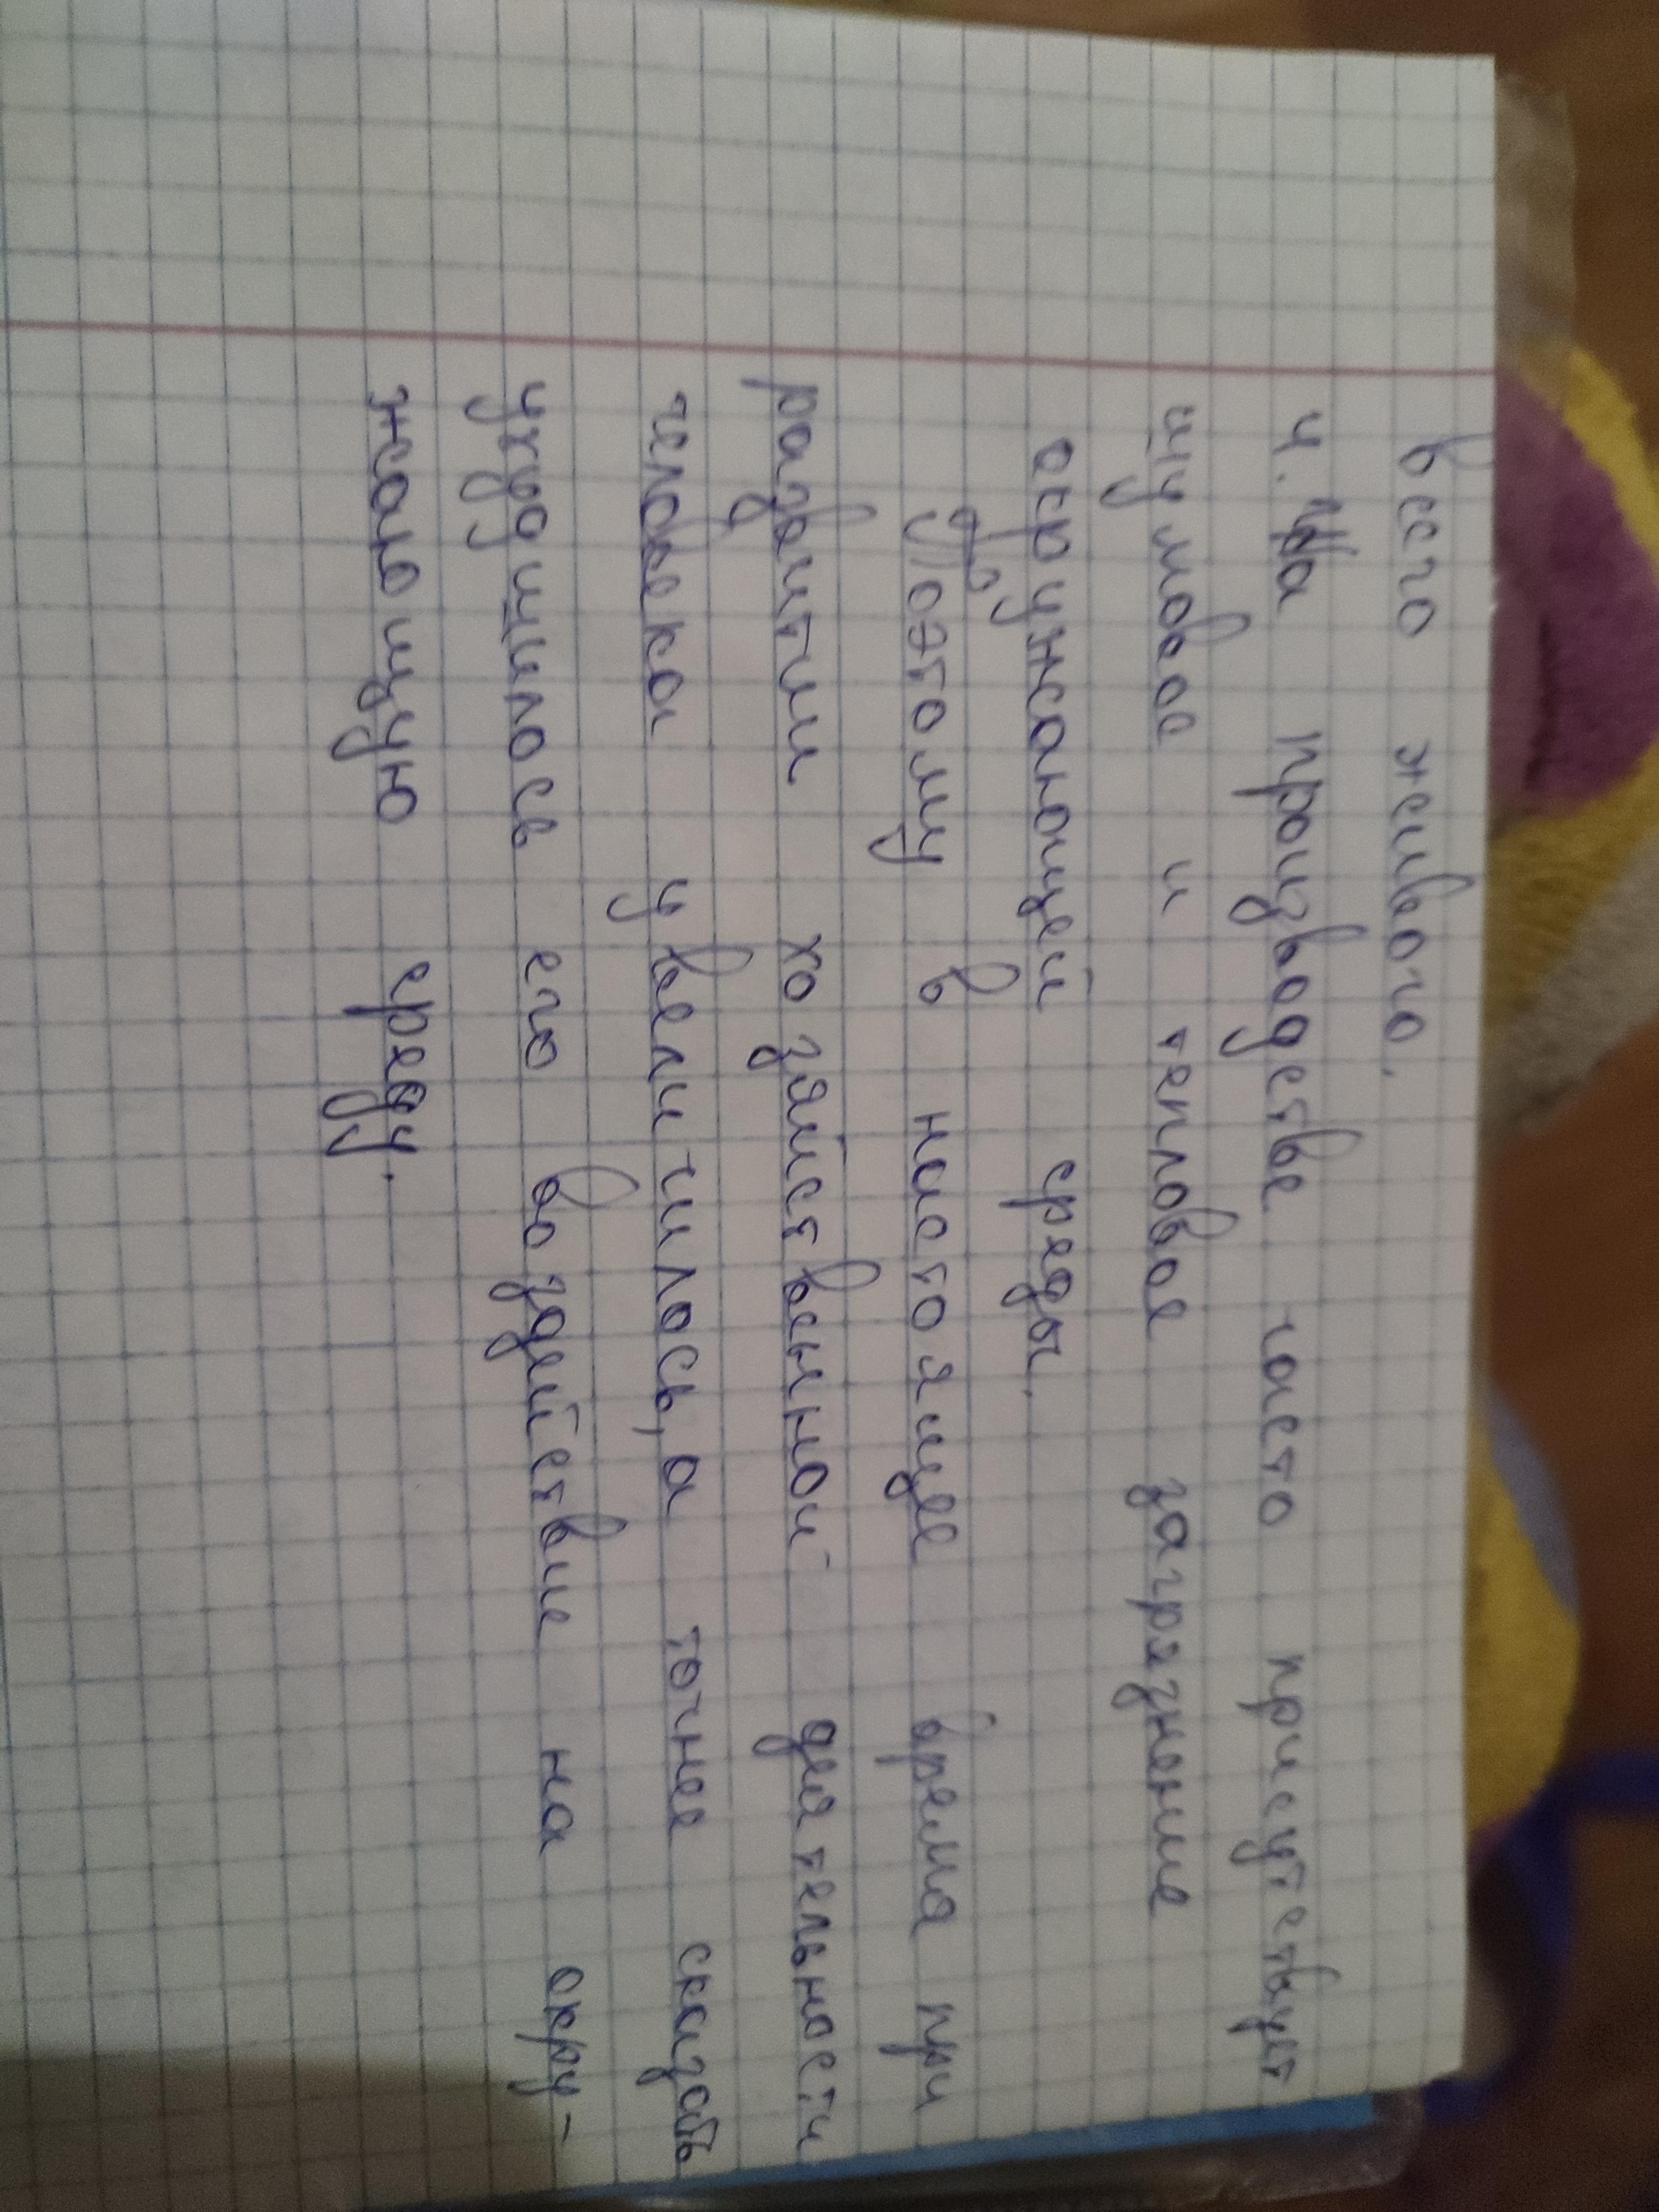 всего живого.
4. На производстве часто присутствует
шумовое и тепловое загрязнение
окружающей среды.
Поэтому в настоящее время при
развитии хозяйственной деятельности
человека увеличилось, а точнее сказать
ухудшилось его воздействие на окру-
жающую среду.